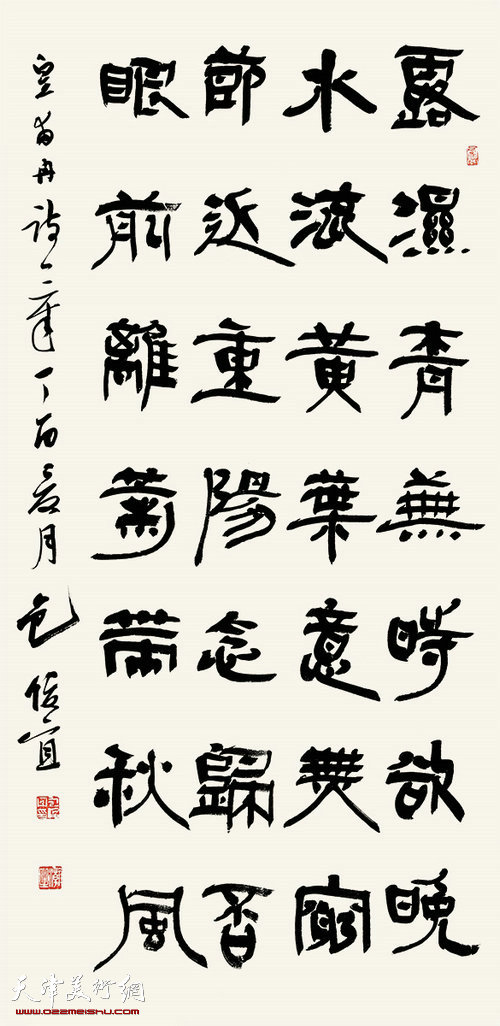 露濕青蕪時欲晚
水流黃葉意無窮
節近重陽念歸否
眼前離菊帶秋風
皇甫冉詩一章丁酉月包俊宜
天津美術網
www.022meishu.com